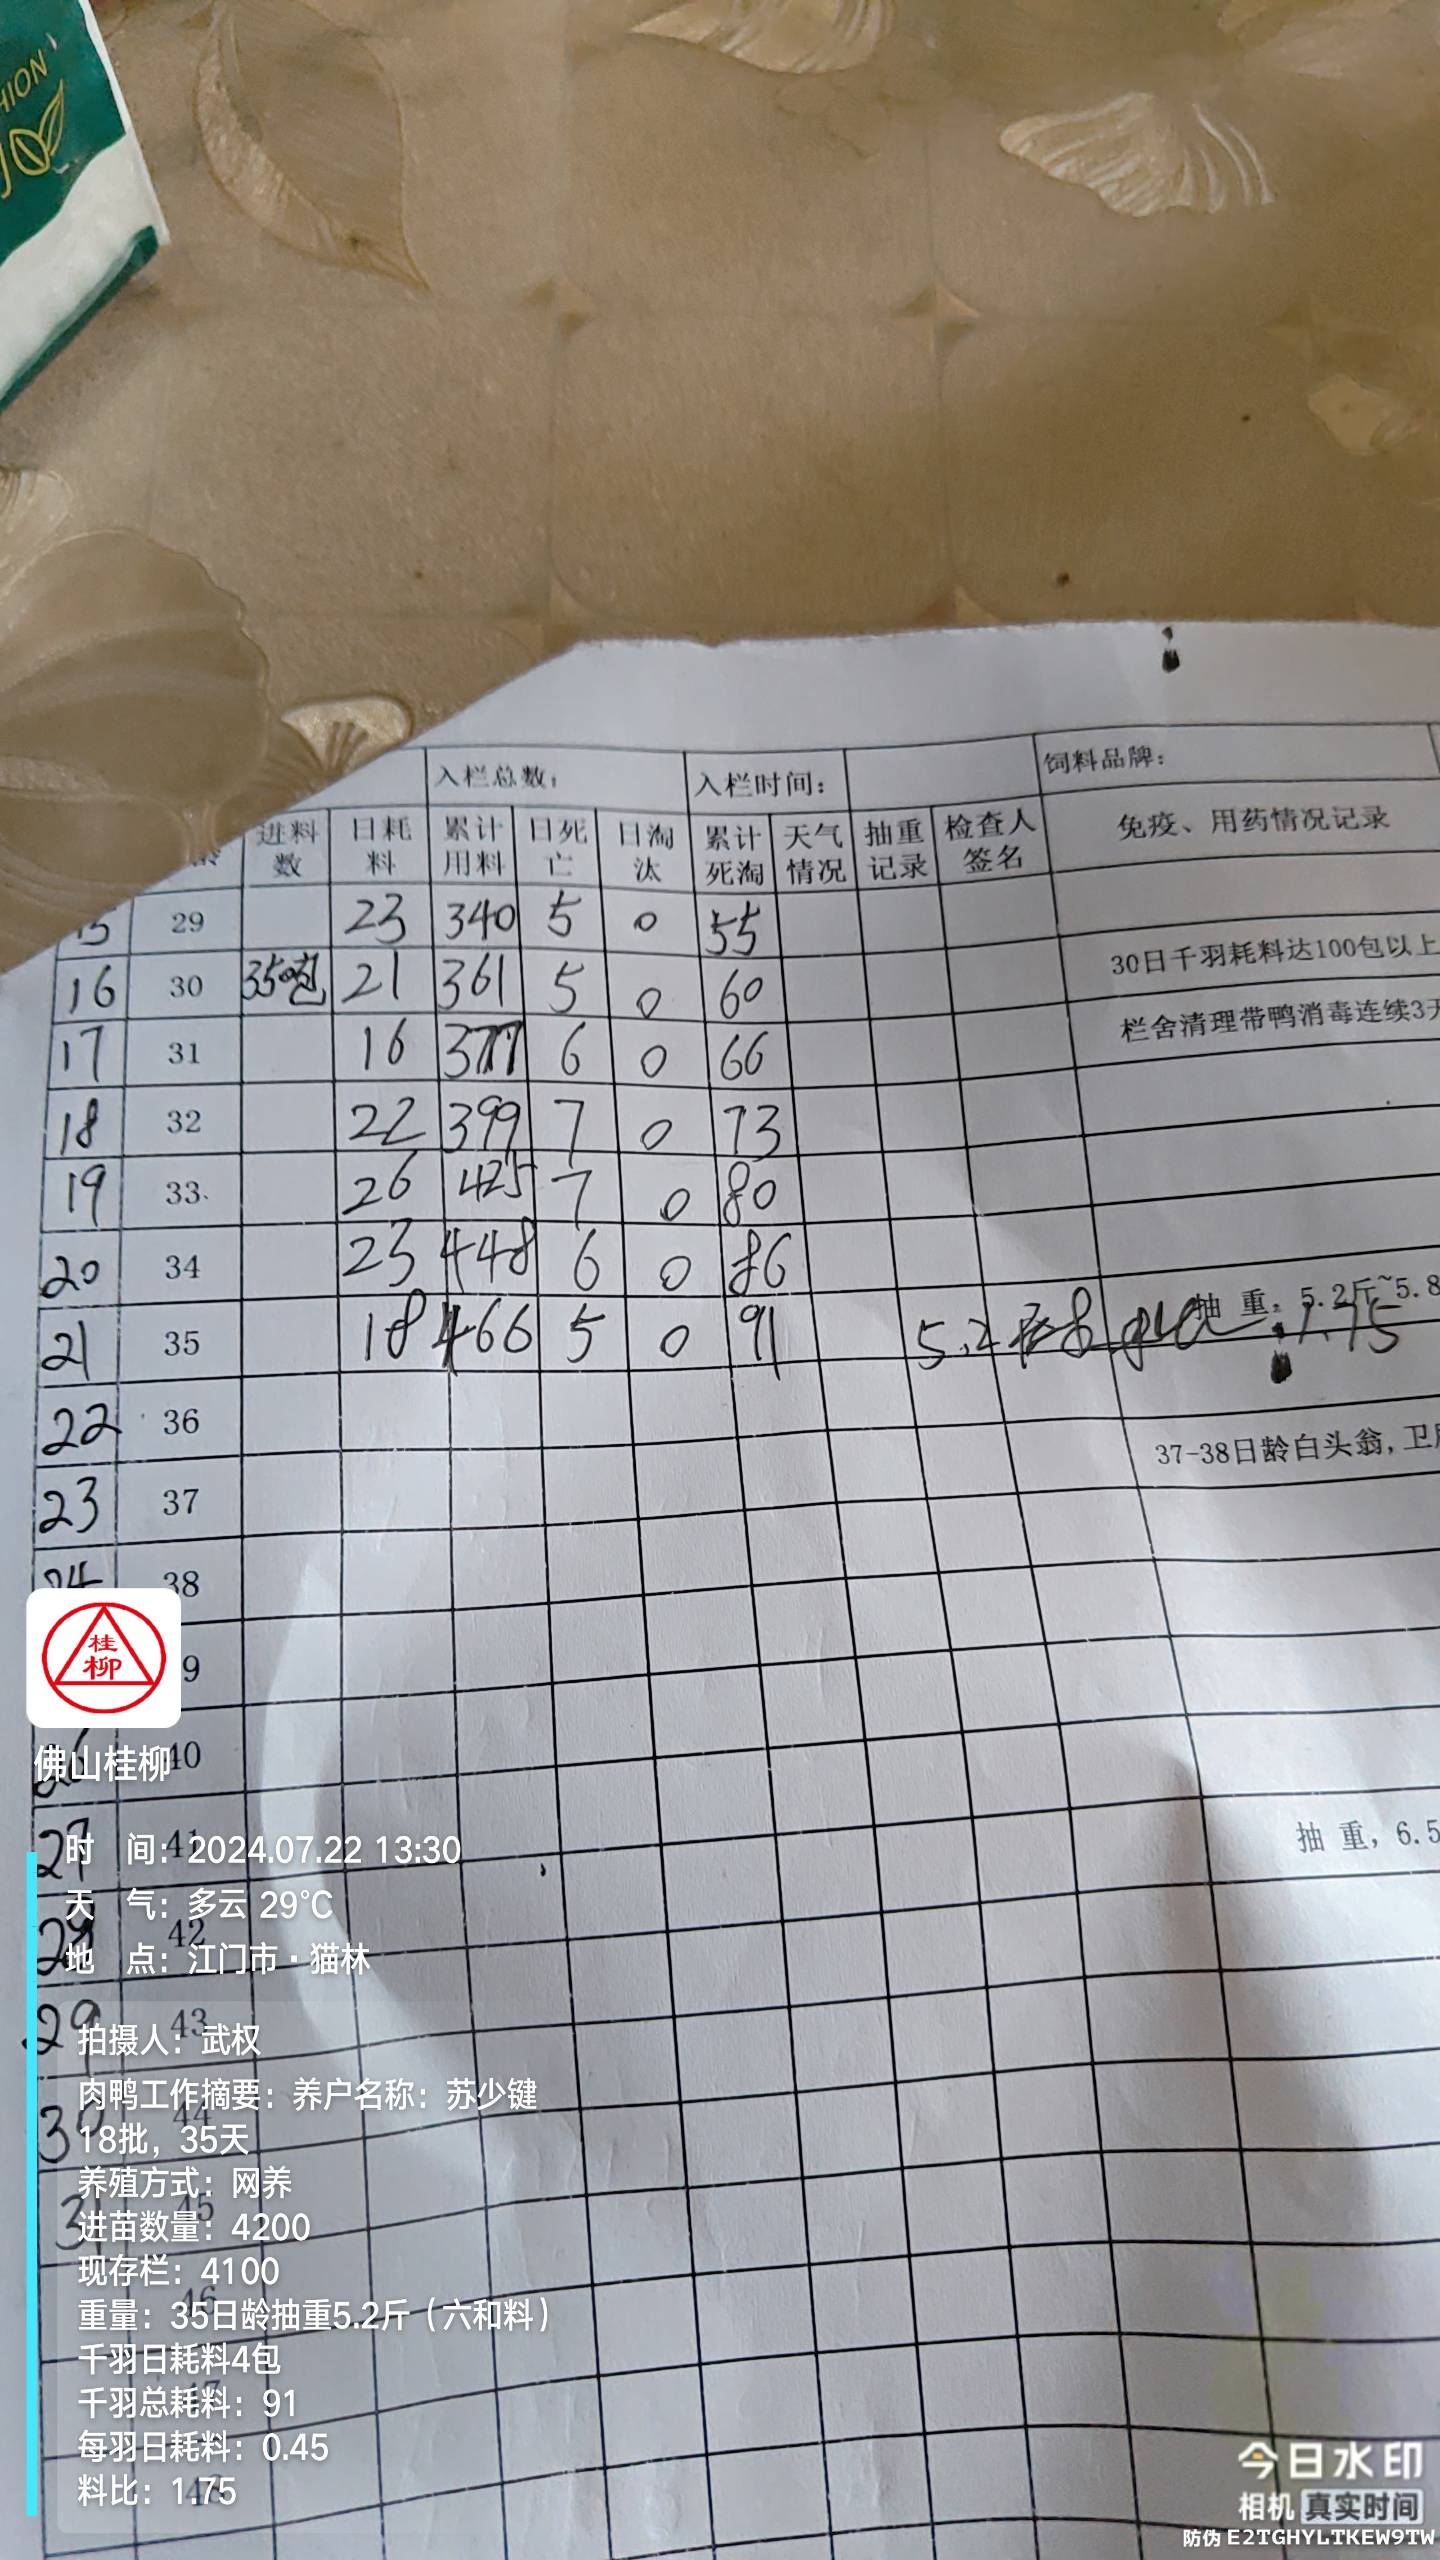 HION
入栏总数：
入栏时间：
饲料品牌：
进料数 日耗料 累计用料 日死亡 日淘汰 累计死淘 天气情况 抽重记录 检查人签名 免疫、用药情况记录
15 29 23 340 5 0 55
16 30 350包 21 361 5 0 60 30日千羽耗料达100包以上
17 31 16 377 6 0 66 栏舍清理带鸭消毒连续3天
18 32 22 399 7 0 73
19 33 26 425 7 0 80
20 34 23 448 6 0 86
21 35 18 466 5 0 91 5.2 抽重：5.2斤~5.8 1.75
22 36
23 37 37-38日龄白头翁,卫
24 38
9
40
27 41 抽重，6.5
28 42
29 43
30 44
31 45
46
47
48
桂柳
佛山桂柳
时 间：2024.07.22 13:30
天 气：多云 29℃
地 点：江门市·猫林
拍摄人：武权
肉鸭工作摘要：养户名称：苏少键
18批，35天
养殖方式：网养
进苗数量：4200
现存栏：4100
重量：35日龄抽重5.2斤（六和料）
千羽日耗料4包
千羽总耗料：91
每羽日耗料：0.45
料比：1.75
今日水印
相机 真实时间
防伪 E2TGHYLTKEW9TW